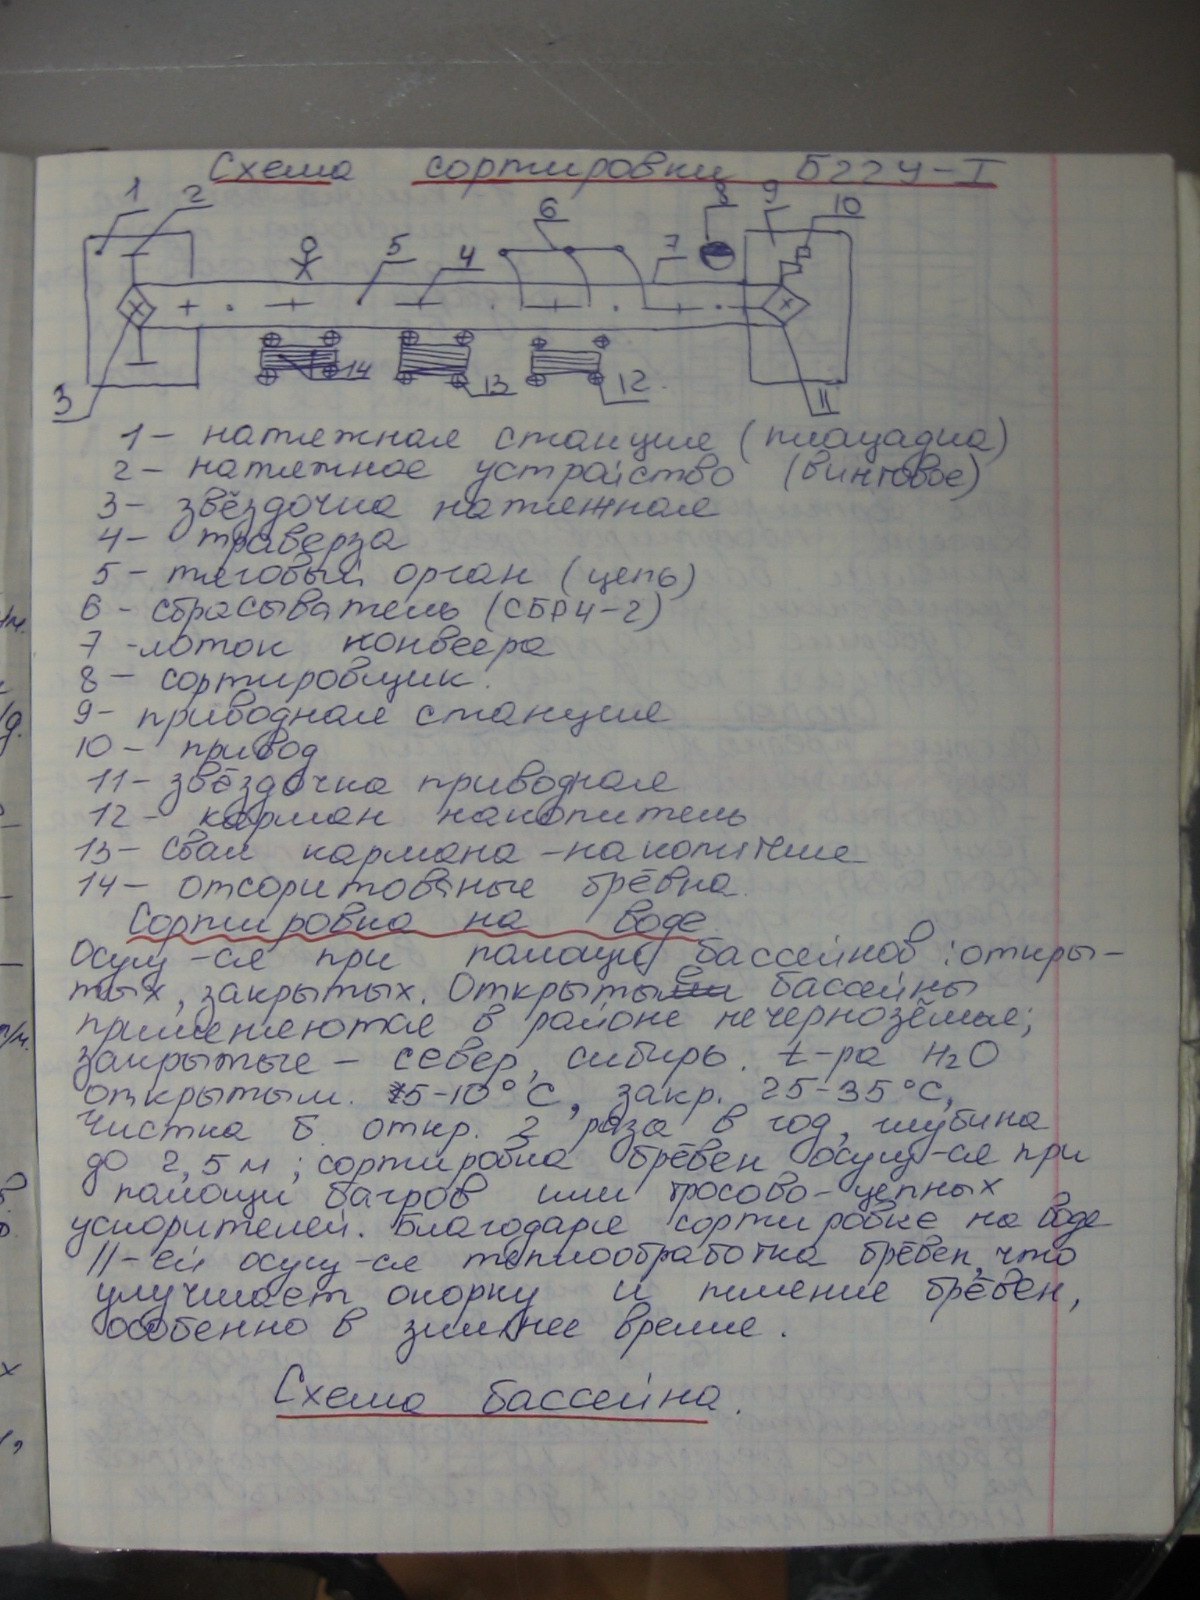 Схема сортировки Б22У-I
1 2 6 8 9 10
5 4 7
14 13 12
3 11
1 – натяжная станция (площадка)
2 – натяжное устройство (винтовое)
3 – звёздочка натяжная
4 – траверза
5 – тяговый орган (цепь)
6 – сбрасыватель (СБР4-2)
7 - лоток конвеера
8 – сортировщик.
9 - приводная станция
10 – привод
11 – звёздочка приводная
12 - карман накопитель
13 – свая кармана - накопителя
14 – отсоритованые брёвна.
Сортировка на воде.
Осущ-ся при помощи бассейнов: откры-
тых, закрытых. Открытые бассейны
применяются в районе нечерноземья;
закрытые – север, сибирь. t-ра H₂O
открытым. 5-10°С, закр. 25-35°С,
Чистка б. откр. 2 раза в год, глубина
до 2,5 м; сортировка брёвен осущ-ся при
помощи багров или тросово-цепных
ускорителей. Благодаря сортировке на воде
II-ей осущ-ся теплообработка брёвен, что
улучшает окорку и пиление брёвен,
особенно в зимнее время.
Схема бассейна.